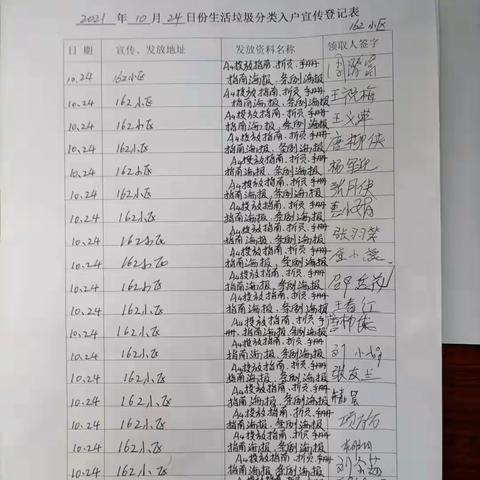 2021 年 10 月 24 日份生活垃圾分类入户宣传登记表
162小区
日 期 宣传、发放地址 发放资料名称 领取人签字
10.24 162小区 A4投放指南、折页、手册 指南海报、条例海报
10.24 162小区 A4投放指南、折页、手册 指南海报、条例海报 王
10.24 162小区 A4投放指南、折页、手册 指南海报、条例海报 王义
10.24 162小区 A4投放指南、折页、手册 指南海报、条例海报
10.24 162小区 A4投放指南、折页、手册 指南海报、条例海报 杨
10.24 162小区 A4投放指南、折页、手册 指南海报、条例海报 张月
10.24 162小区 A4投放指南、折页、手册 指南海报、条例海报
10.24 162小区 A4投放指南、折页、手册 指南海报、条例海报 张
10.24 162小区 A4投放指南、折页、手册 指南海报、条例海报 小
10.24 162小区 A4投放指南、折页、手册 指南海报、条例海报
10.24 162小区 A4投放指南、折页、手册 指南海报、条例海报 王春行
10.24 162小区 A4投放指南、折页、手册、指南海报、条例海报
10.24 162小区 A4投放指南、折页、手册 指南海报、条例海报 刘小
10.24 162小区 A4投放指南、折页、手册 指南海报、条例海报 张友兰
10.24 162小区 A4投放指南、折页、手册 指南海报、条例海报
10.24 162小区 A4投放指南、折页、手册 指南海报、条例海报
10.24 162小区 A4投放指南、折页、手册 指南海报、条例海报
10.24 162小区 A4投放指南、折页、手册 指南海报、条例海报 刘